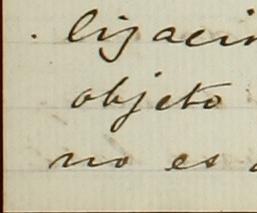 . ligació
objeto
no es